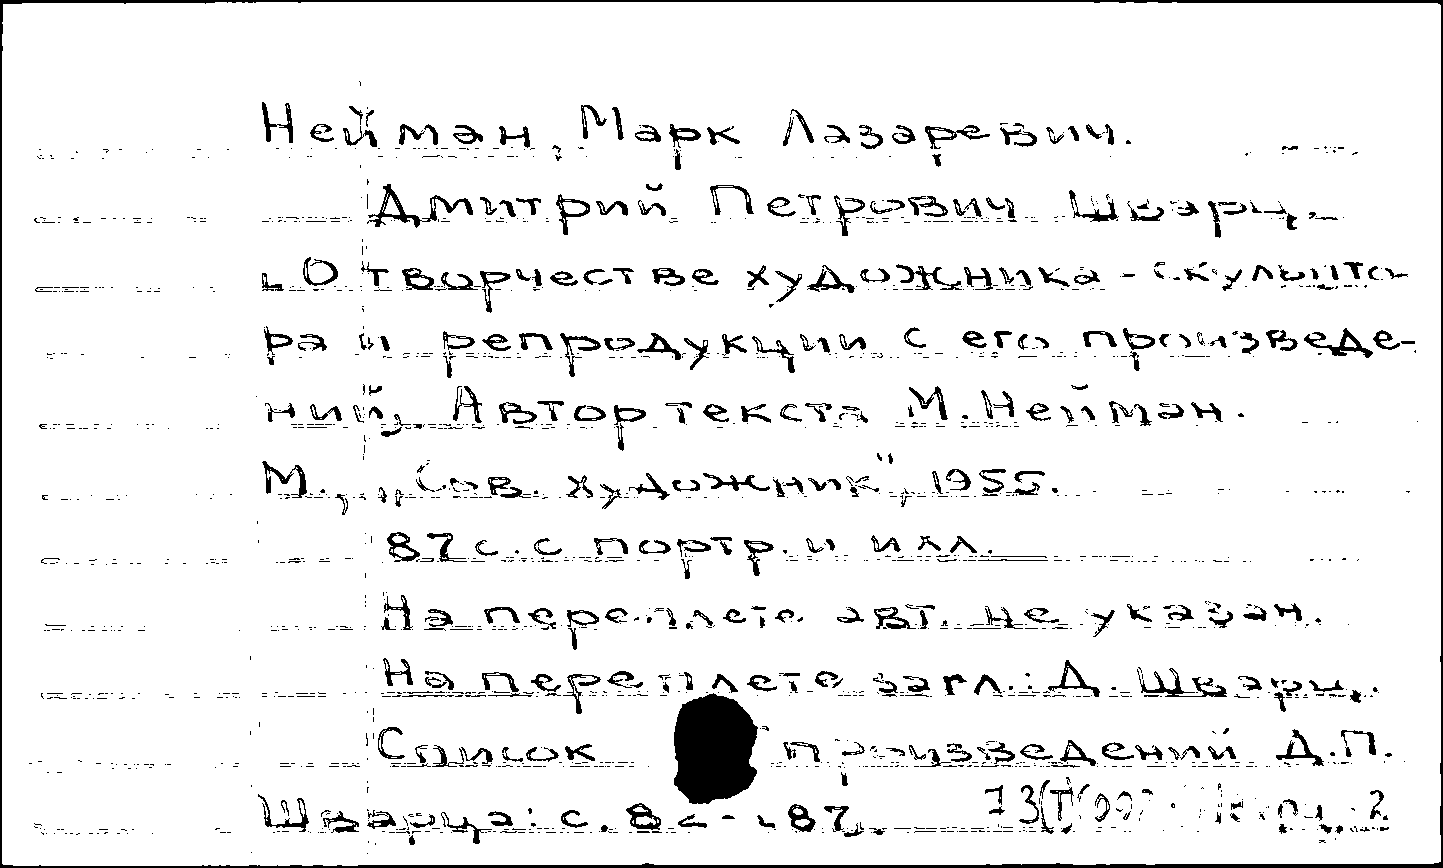 Нейман, Марк Лазаревич.
Дмитрий Петрович Шварц.
[О творчестве художника-скульпто-
ра и репродукции с его произведе-
ний]. Автор текста М. Нейман.
М., „Сов. художник", 1955.
87 с. с портр. и илл.
На переплете авт. не указан.
На переплете загл.: Д. Шварц.
Список произведений Д.П.
Шварца: с.